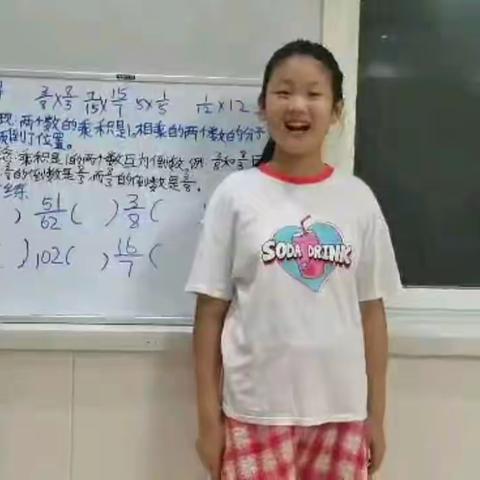 3/8×8/3 7/15×15/7 5×1/5 1/12×12
现:两个数的乘积是1,相乘的两个数的分子
倒了位置。
乘积是1的两个数互为倒数.例 3/8和8/3
的倒数是 而 的倒数是3/8。
练
) 51/62( ) 3/8(
) 102( ) 16/7(
SODA DRINK